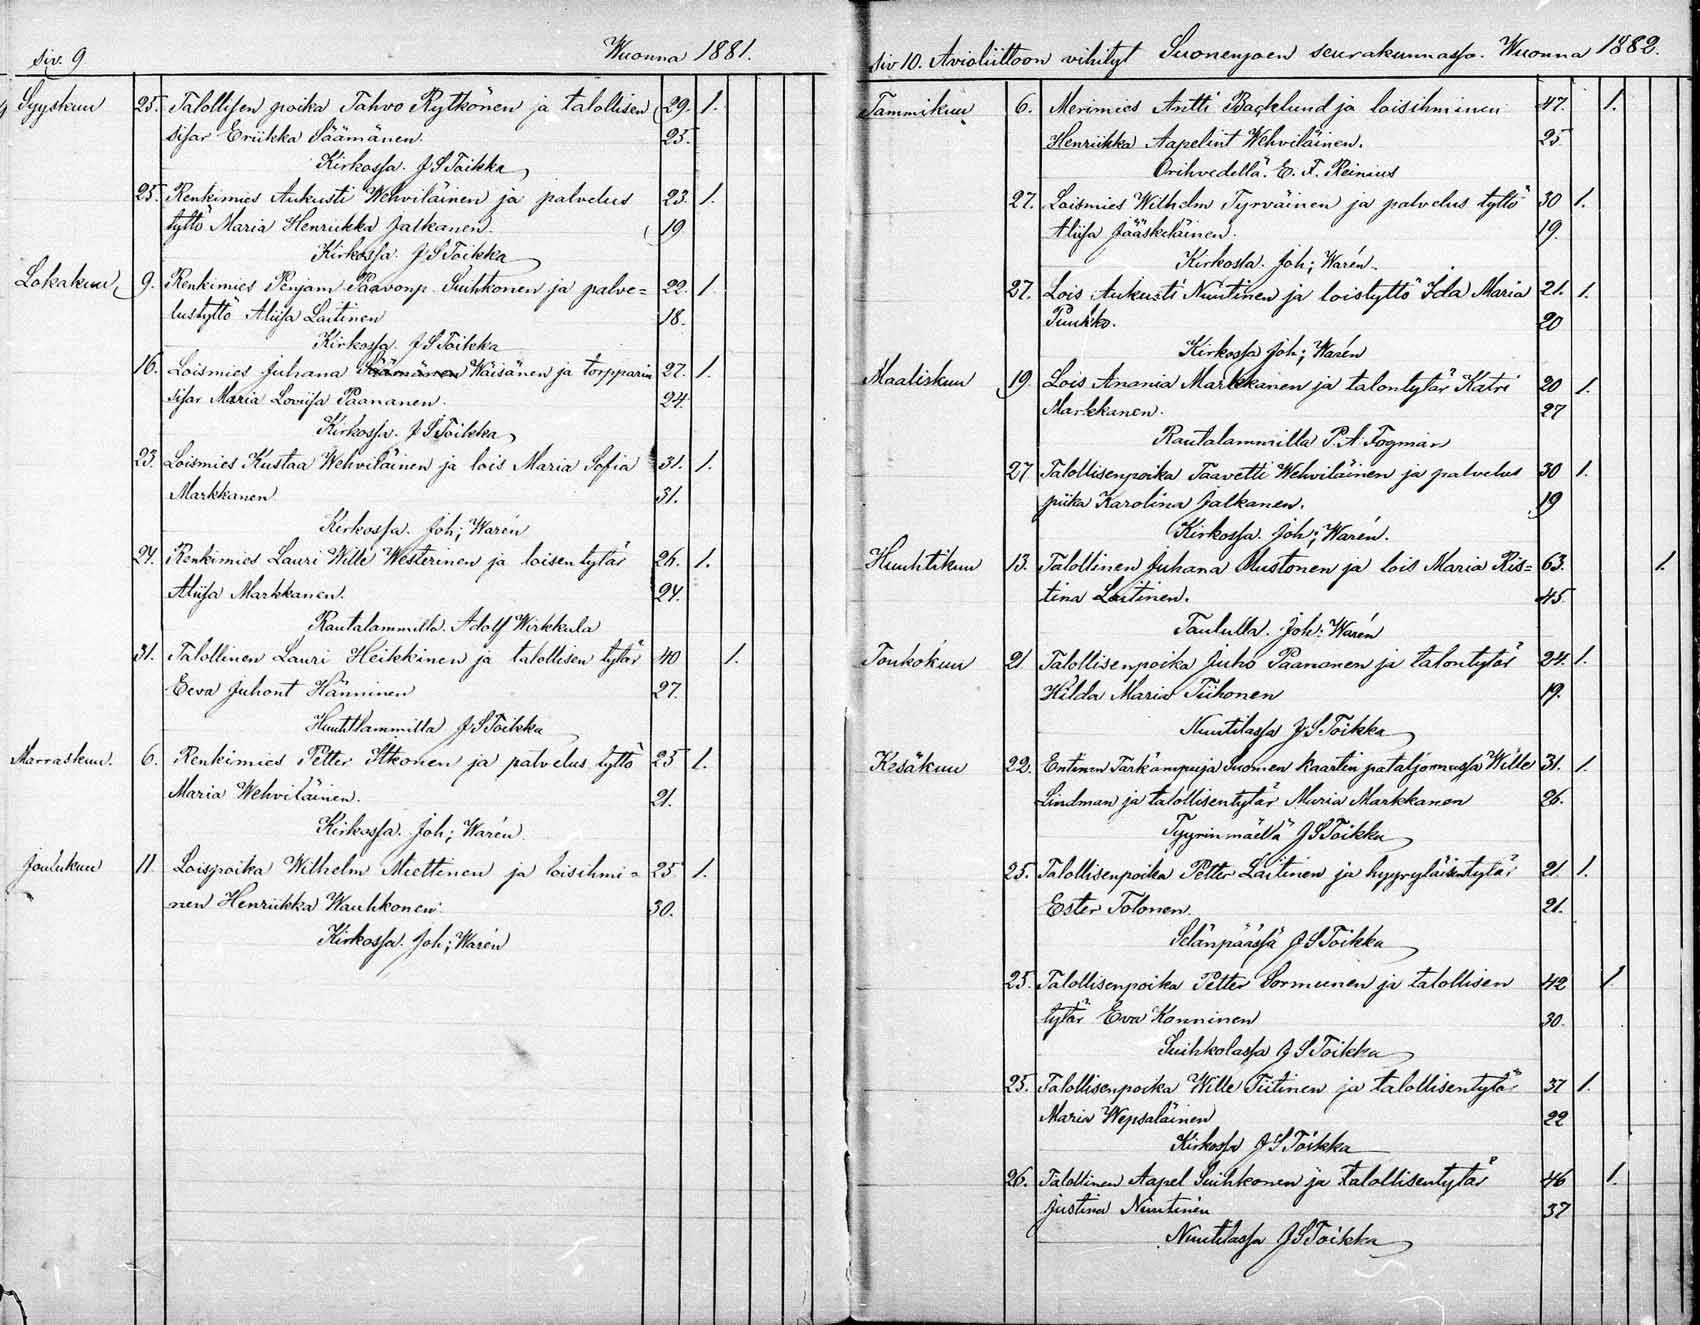 siv. 9 Wuonna 1881.
Syyskuu 25. Talollisen poika Tahvo Rytkönen ja talollisen 29. 1.
sisar Eriikka Säämänen. 25.
Kirkossa. J S Toikka
25. Renkimies Aukusti Wehviläinen ja palvelus 23. 1.
tyttö Maria Henriikka Jalkanen. 19
Kirkossa. J S Toikka
Lokakuu 9. Renkimies Penjam Paavonp. Suihkonen ja palve= 22. 1.
lustyttö Aliisa Laitinen 18.
Kirkossa. J S Toikka
16. Loismies Juhana Säämänen Wäisänen ja torpparin 27. 1.
sisar Maria Loviisa Paananen. 24.
Kirkossa. J S Toikka
23. Loismies Kustaa Wehviläinen ja lois Maria Sofia 31. 1.
Markkanen 31.
Kirkossa. Joh; Warén
24. Renkimies Lauri Wille Westerinen ja loisentytär 26. 1.
Aliisa Markkanen. 24.
Rautalammilla. Adolf Wirkkula
31. Talollinen Lauri Heikkinen ja talollisen tytär 40 1.
Eeva Juhont Hänninen 27.
J S Toikka
Marraskuu. 6. Renkimies Petter Itkonen ja palvelus tyttö 25 1.
Maria Wehviläinen. 21.
Kirkossa. Joh; Warén
Joulukuu 11. Loispoika Wilhelm Miettinen ja loisihmi= 25. 1.
nen Henriikka Wauhkonen 30.
Kirkossa. Joh; Warén
siv 10. Avioliittoon vihityt Suonenjoen seurakunnassa. Wuonna 1882.
Tammikuu 6. Merimies Antti Backlund ja loisihminen 47. 1.
Henriikka Aapelint Wehviläinen. 25
Orihvedellä. E. F. Reinius
27. Loismies Wilhelm Tyrväinen ja palvelus tyttö 30 1.
Aliisa Jääskeläinen. 19.
Kirkossa. Joh; Warén
27. Lois Aukusti Nuutinen ja loistyttö Ida Maria 21. 1.
Puukko. 20
Kirkossa Joh; Warén
Maaliskuu 19. Lois Anania Markkanen ja talontytär Katri 20 1.
Markkanen. 27
Rautalammilla P. A. Fogman
27 Talollisenpoika Taavetti Wehviläinen ja palvelus 30 1.
piika Karolina Jalkanen. 19
Kirkossa. Joh; Warén.
Huuhtikuu 13. Talollinen Juhana Mustonen ja lois Maria Ris= 63. 1.
tina Laitinen. 45
Joh; Warén
Toukokuu 21. Talollisenpoika Juho Paananen ja talontytär 24. 1.
Hilda Maria Tiihonen 19.
Nuutilassa J S Toikka
Kesäkuu 22. Entinen Tark'ampuja Suomen kaartin pataljoonassa Wille 31. 1.
Lindman ja talollisentytär Maria Markkanen 26.
Tyyrinmäellä J S Toikka
25. Talollisenpoika Petter Laitinen ja hyyryläisentytär 21. 1.
Ester Tolonen. 21.
Selänpäässä J S Toikka
25. Talollisenpoika Petter Sormunen ja talollisen 42 1.
tytär Eva Konninen 30.
Suihkolassa J S Toikka
25. Talollisenpoika Wille Tiitinen ja talollisentytär 37 1.
Maria Wepsäläinen 22
Kirkossa J S Toikka
26. Talollinen Aapel Suihkonen ja talollisentytär 46 1.
Justina Nuutinen 37
Nuutilassa J S Toikka